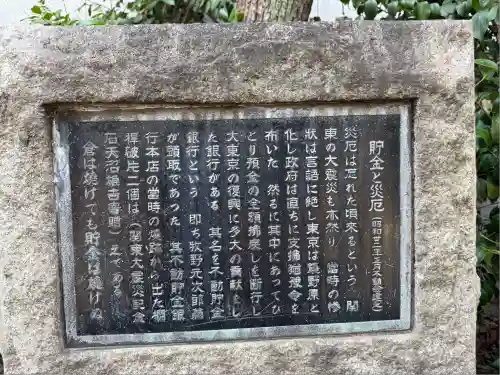 貯金と災厄
災厄は忘れた頃来るという 関
東の大震災も亦然り 當時の惨
狀は言語に絶し東京は焦野原と
化し政府は直ちに支拂猶豫令を
布いた 然るに其中にあってひ
とり預金の全額拂戻しを断行し
大東京の復興に多大の貢献をし
た銀行がある 其名を不動貯金
銀行という 即ち牧野元次郎翁
が頭取であった 其不動貯金銀
行本店の當時の焼跡から出た
破片二個は(関東大震災記念
石天活雄吉寄贈)之である
倉は焼けても貯金は焼けぬ